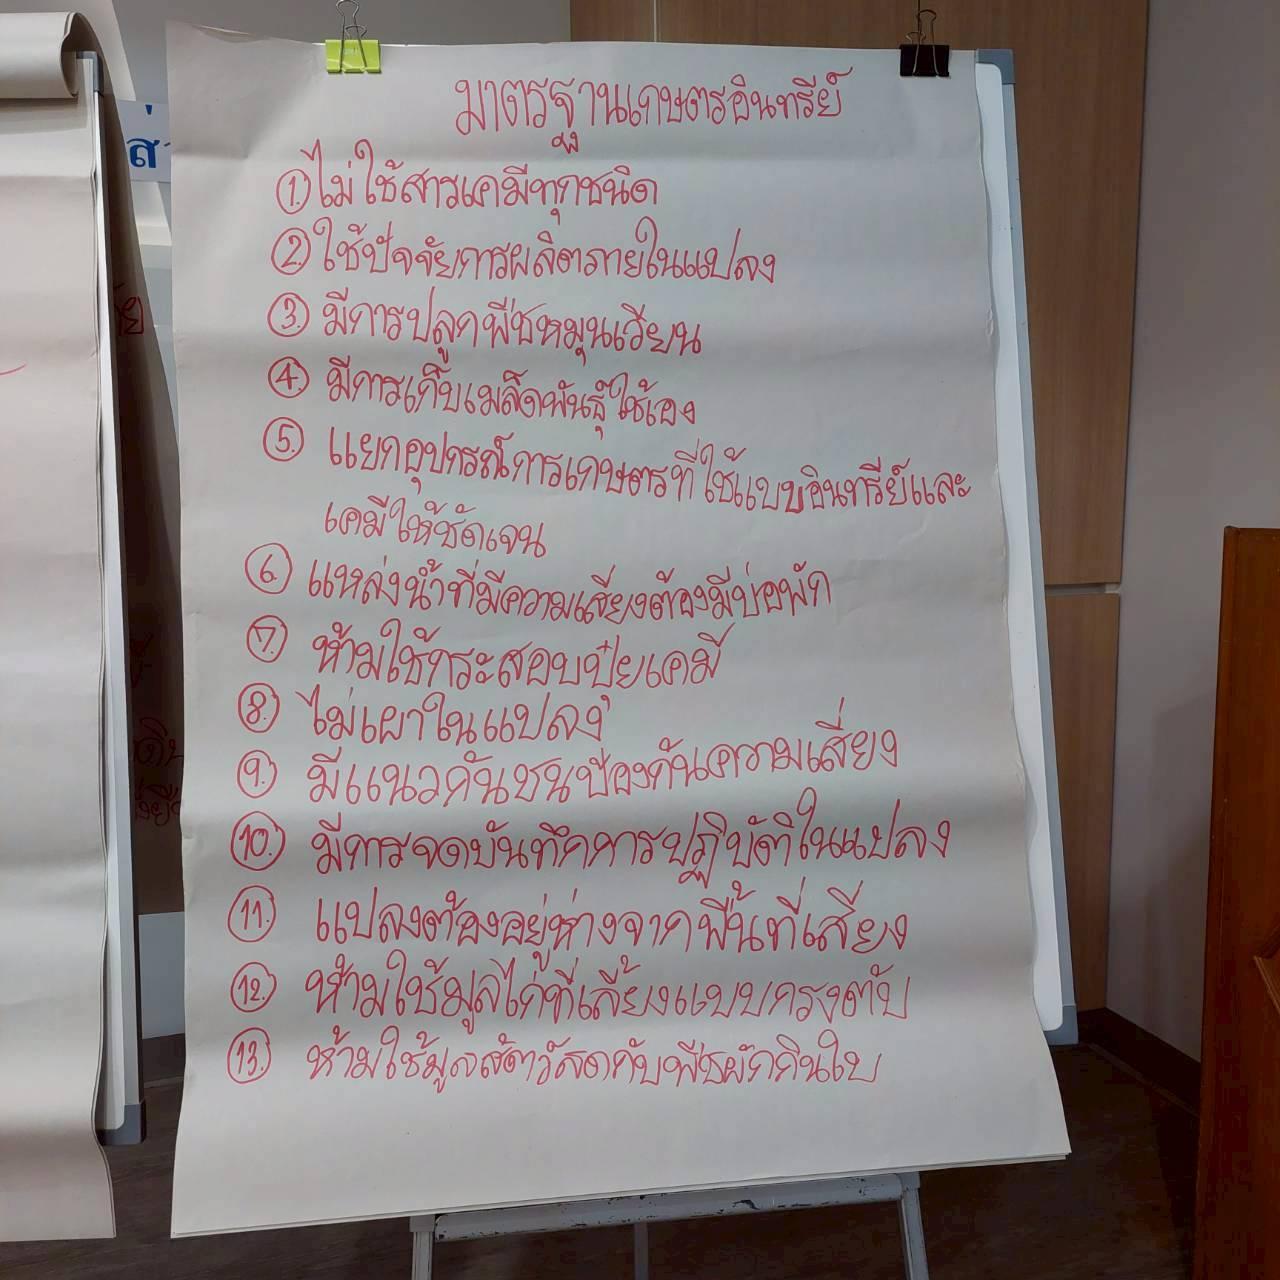 มาตรฐานเกษตรอินทรีย์
1. ไม่ใช้สารเคมีทุกชนิด
2. ใช้ปัจจัยการผลิตภายในแปลง
3. มีการปลูกพืชหมุนเวียน
4. มีการเก็บเมล็ดพันธุ์ใช้เอง
5. แยกอุปกรณ์การเกษตรที่ใช้แบบอินทรีย์และ
เคมีให้ชัดเจน
6. แหล่งน้ำที่มีความเสี่ยงต้องมีบ่อพัก
7. ห้ามใช้กระสอบปุ๋ยเคมี
8. ไม่เผาในแปลง
9. มีแนวกันชนป้องกันความเสี่ยง
10. มีการจดบันทึกการปฏิบัติในแปลง
11. แปลงต้องอยู่ห่างจากพื้นที่เสี่ยง
12. ห้ามใช้มูลไก่ที่เลี้ยงแบบกรงตับ
13. ห้ามใช้มูลสัตว์สดกับพืชผักกินใบ